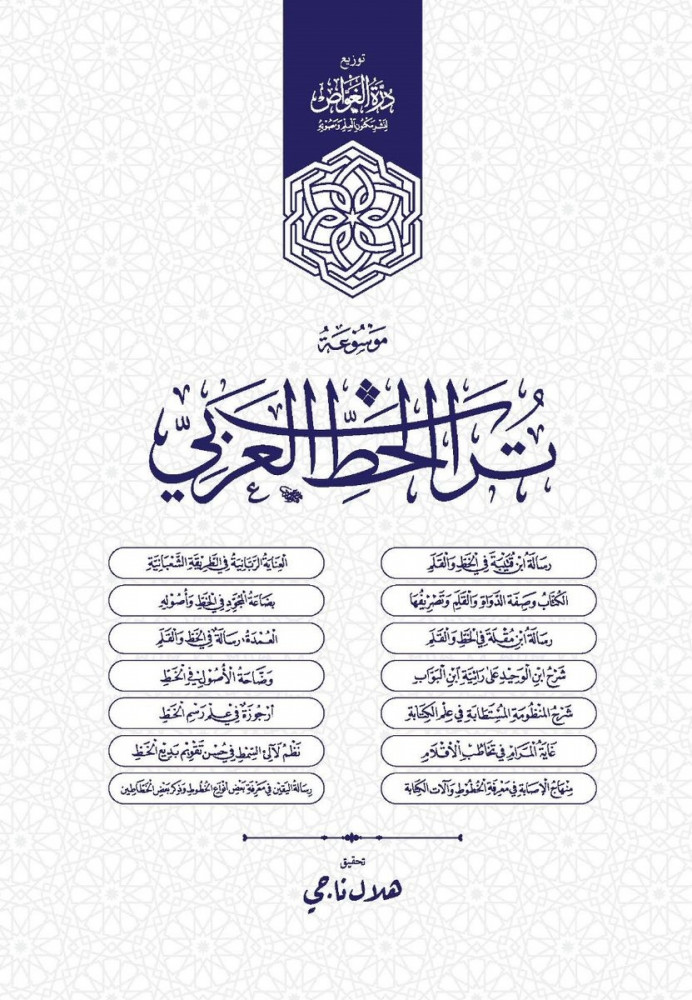 توزيع
درة الغواص
لنشر مكنون العلم ومصونه
موسوعة
تراث الخط العربي
رسالة ابن قتيبة في الخط والقلم
الكتاب وصفة الدواة والقلم وتصريفها
رسالة ابن مقلة في الخط والقلم
شرح ابن الوحيد على رائية ابن البواب
شرح المنظومة المستطابة في علم الكتابة
غاية المرام في تخاطب الأقلام
منهاج الإصابة في معرفة الخطوط وآلات الكتابة
العناية الربانية في الطريقة الشعبانية
بضاعة المجود في الخط وأصوله
العمدة، رسالة في الخط والقلم
وضاحة الأصول في الخط
أرجوزة في علم رسم الخط
نظم لآلئ السمط في حسن تقويم بديع الخط
رسالة اليقين في معرفة بعض أنواع الخطوط وذكر بعض الخطاطين
تحقيق
هلال ناجي